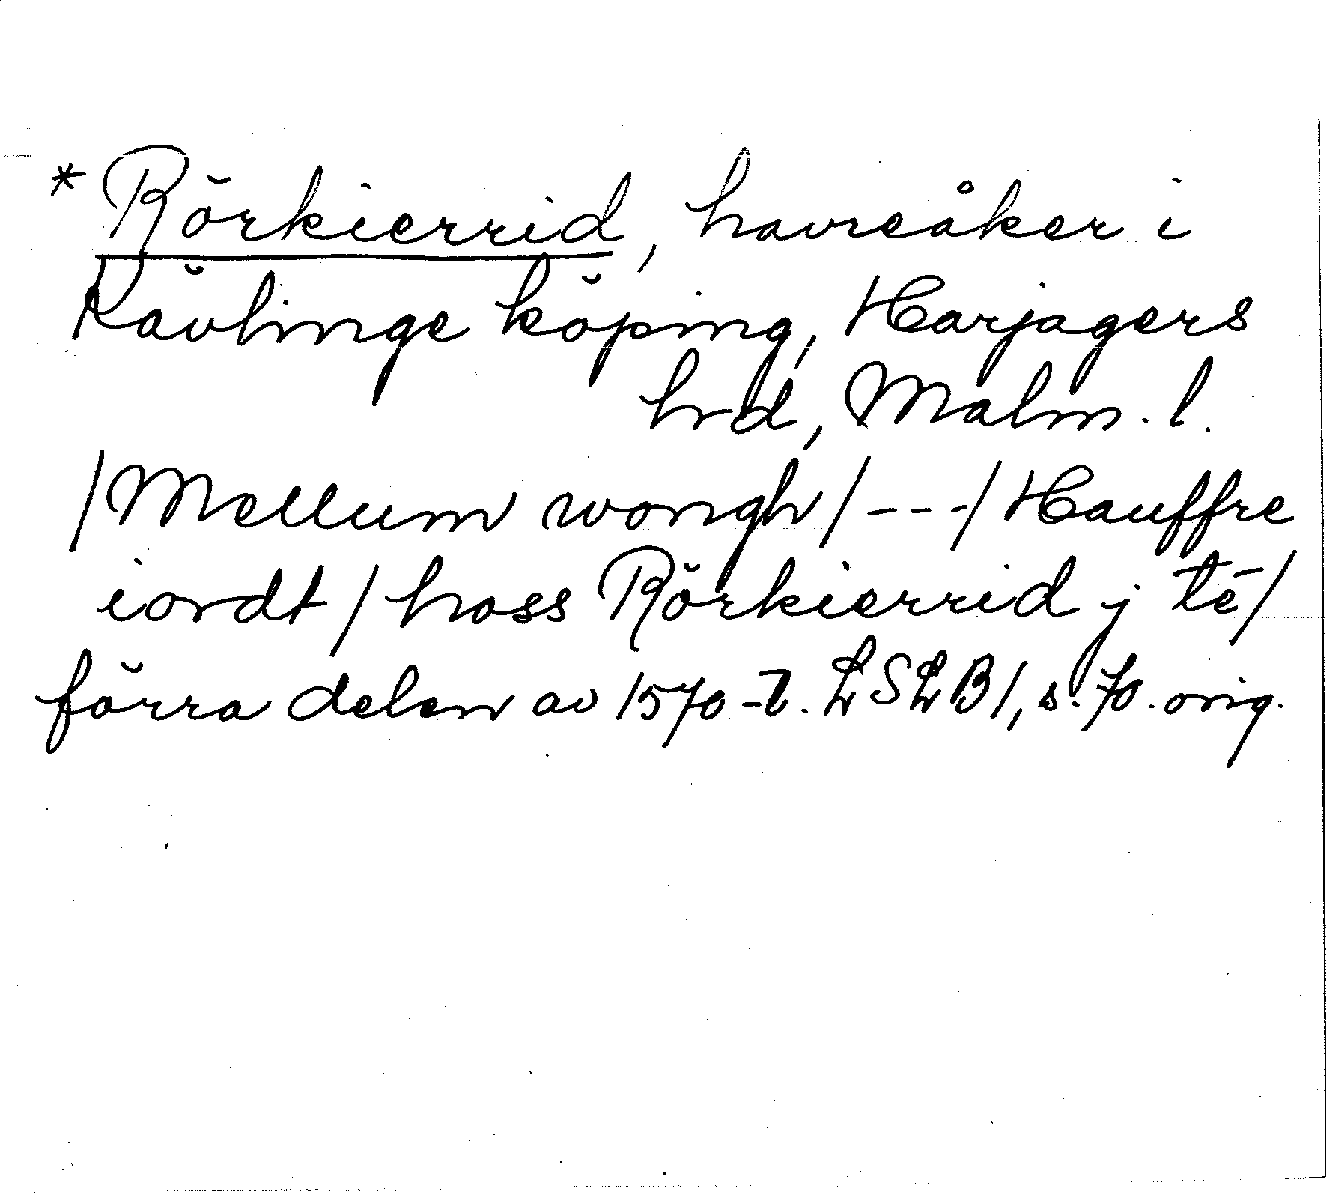 * Rörkierrid, havreåker i
Kävlinge köping, Harjagers
hrd, Malm. l.
/Mellum wongh/---/Hauffre
iordt/hoss Rörkierrid j tē/
förra delen av 1570-t. LSLB1, s. 70. orig.